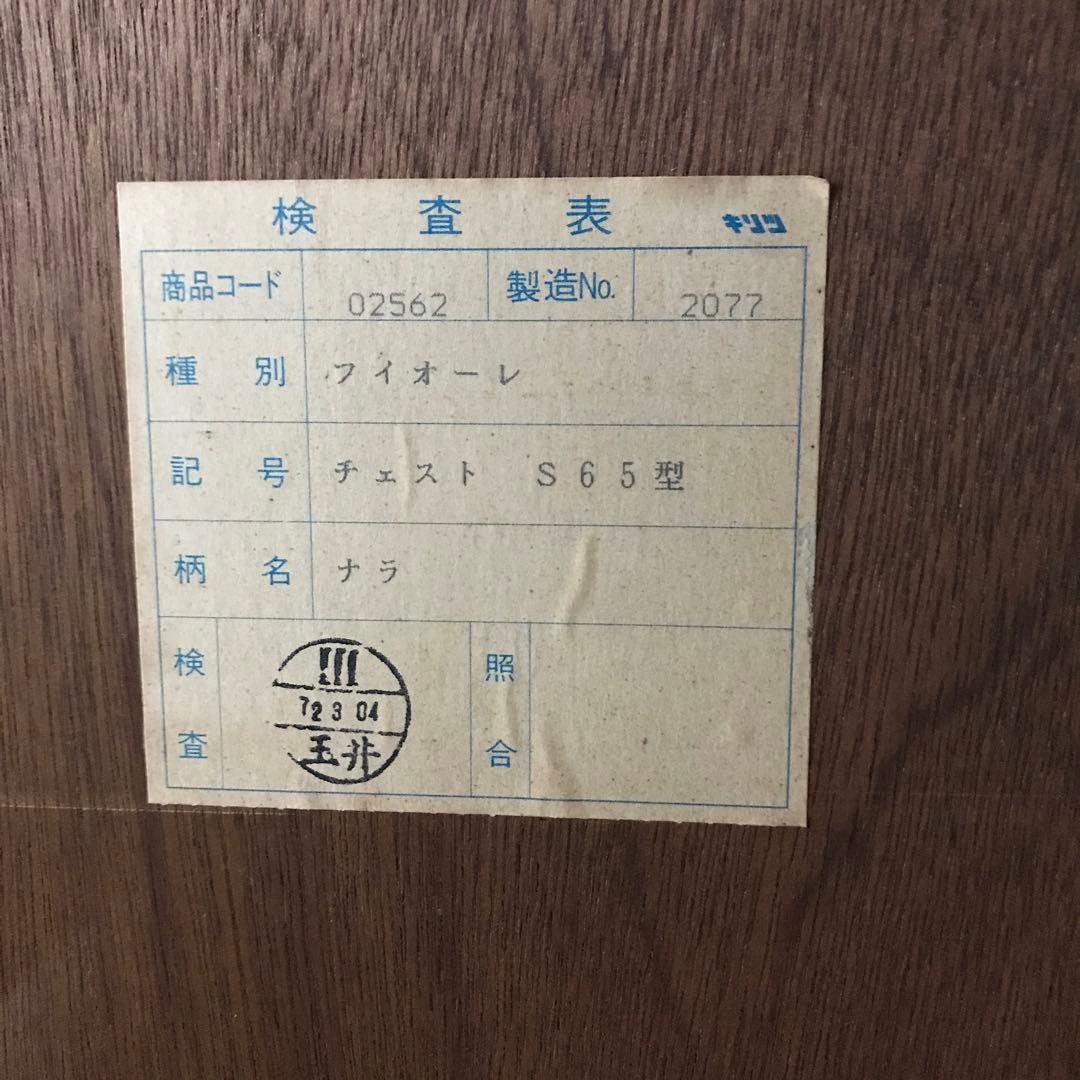 検査表 キリツ
商品コード 02562 製造No. 2077
種別 フイオーレ
記号 チェスト S65型
柄名 ナラ
検査 照合
72 3 04
玉井